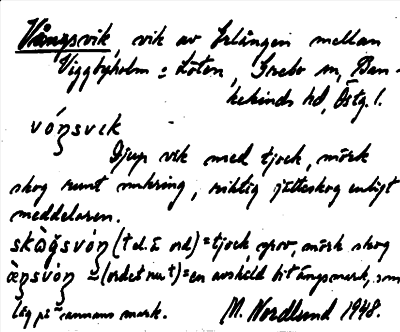 Vångsvik, vik av Erlången mellan
Viggbyholm o Löten, Grebo sn, Ban-
kekinds hd, Östg. l.
vóŋsvɩk
Djup vik med tjock, mörk
skog runt omkring, riktig jätteskog enligt
meddelaren.
(t d. ä ord) = tjock, grov, mörk skog
= (ordet nu t) = en avskild bit ängsmark, som
låg på annans mark. M. Nordlund 1948.